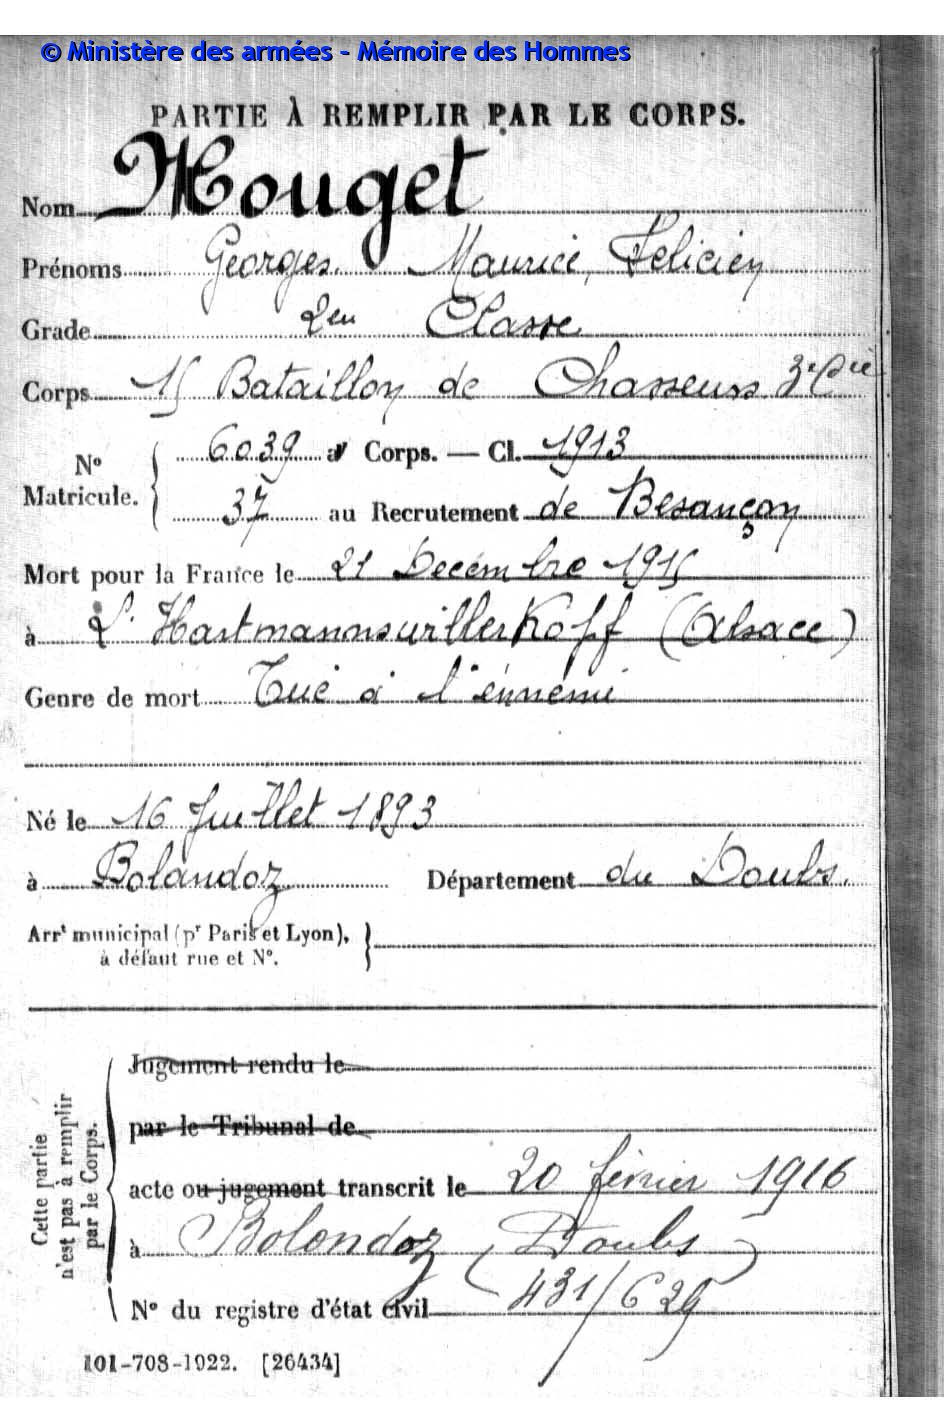 © Ministère des armées - Mémoire des Hommes
PARTIE À REMPLIR PAR LE CORPS.
Nom Mouget
Prénoms Georges, Maurice, Félicien
Grade 2en Classe
Corps 15 Bataillon de Chasseurs 3e Cie
N° Matricule. 6039 au Corps. — Cl. 1913
37 au Recrutement de Besançon
Mort pour la France le 21 Decembre 1915
à L'Hartmannswillerkoff (Alsace)
Genre de mort Tué à l'ennemi
Né le 16 Juillet 1893
à Bolandoz Département du Doubs.
Arrt municipal (pr Paris et Lyon),
à défaut rue et N°.
Cette partie n'est pas à remplir par le Corps.
Jugement rendu le
par le Tribunal de
acte ou jugement transcrit le 20 février 1916
à Bolondoz (Doubs)
N° du registre d'état civil 431/629
101-708-1922. [26434]